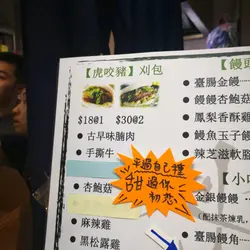 【虎咬豬】刈包
$18@1 $30@2
古早味腩肉
手撕牛
杏鮑菇
麻辣雞
黑松露雞
平過自己種
甜過你初戀
【饅頭
臺腸金饅
饅饅杏鮑菇
鳳梨香酥雞
鰻魚玉子饅
辣芝滋軟
【小口
金銀饅饅
(配抹茶煉乳
臺腸饅角